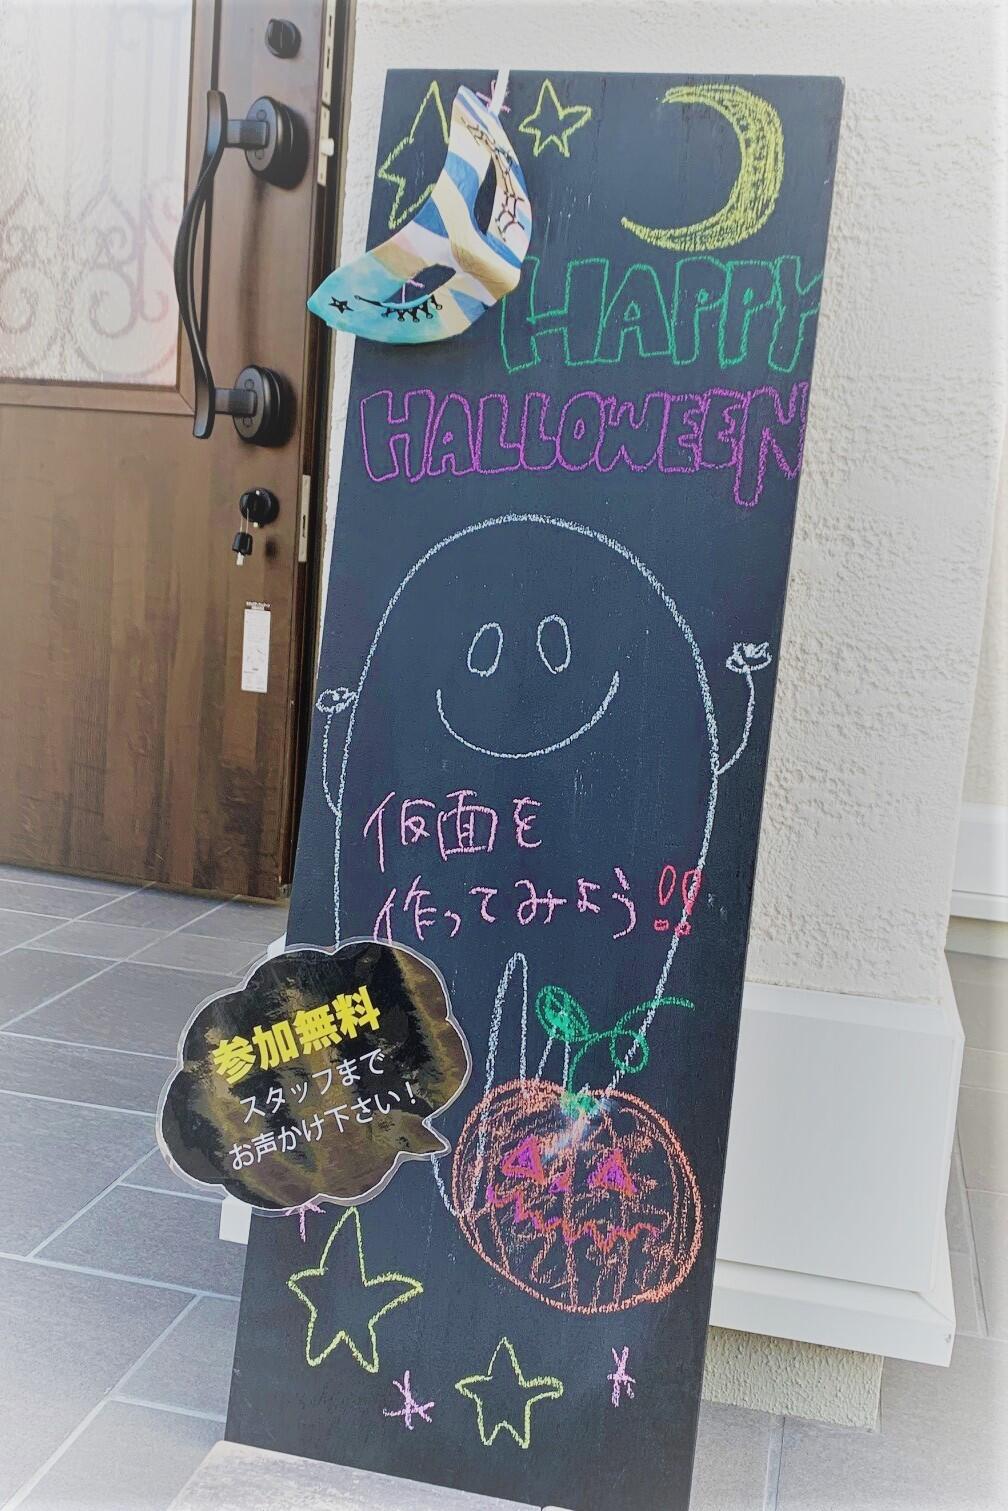 HAPPY
HALLOWEEN
仮面を
作ってみよう!!
参加無料
スタッフまで
お声かけ下さい！